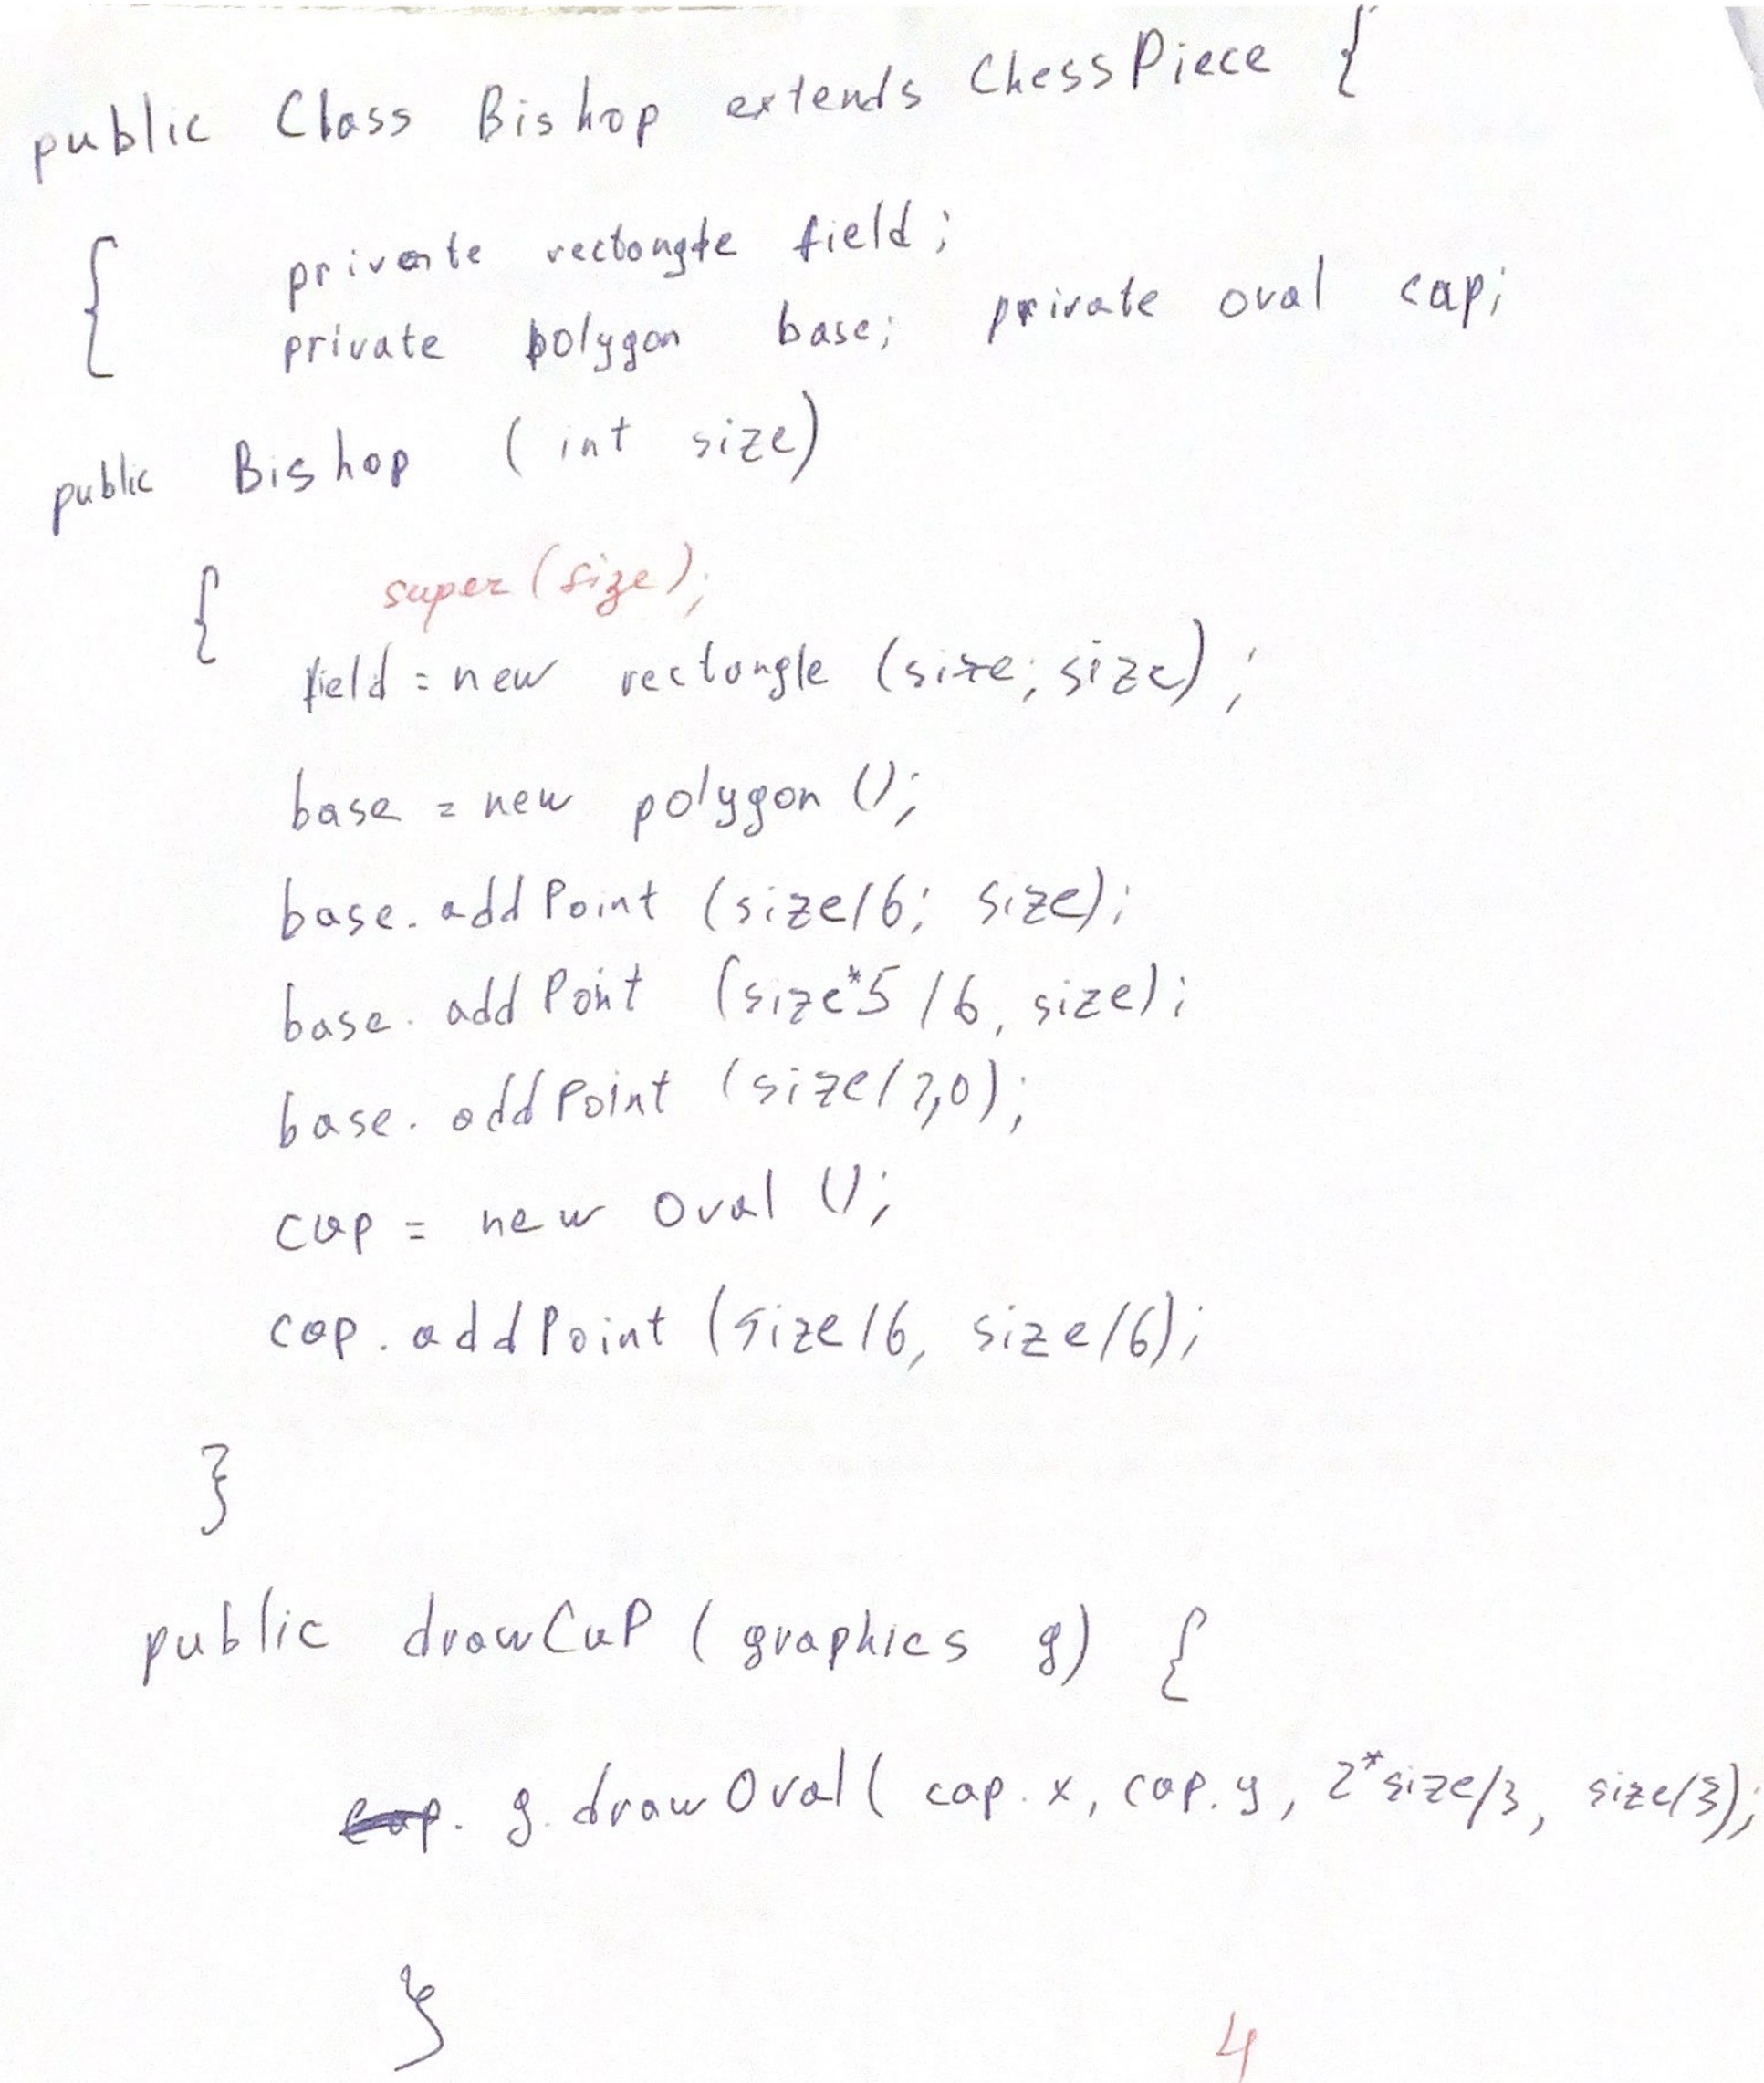 public Class Bishop extends ChessPiece {
{ private rectangle field;
private polygon base; private oval cap;
public Bishop ( int size)
{ super (size);
field = new rectangle (size; size) ;
base = new polygon ();
base. addPoint (size/6; size);
base. addPoint (size*5 /6, size);
base. addPoint (size/2,0);
cap = new Oval ();
cap. addPoint (size/6, size/6);
}
public drawCaP ( graphics g) {
g. drawOval ( cap. x, cap. y, 2*size/3, size/3);
}
4